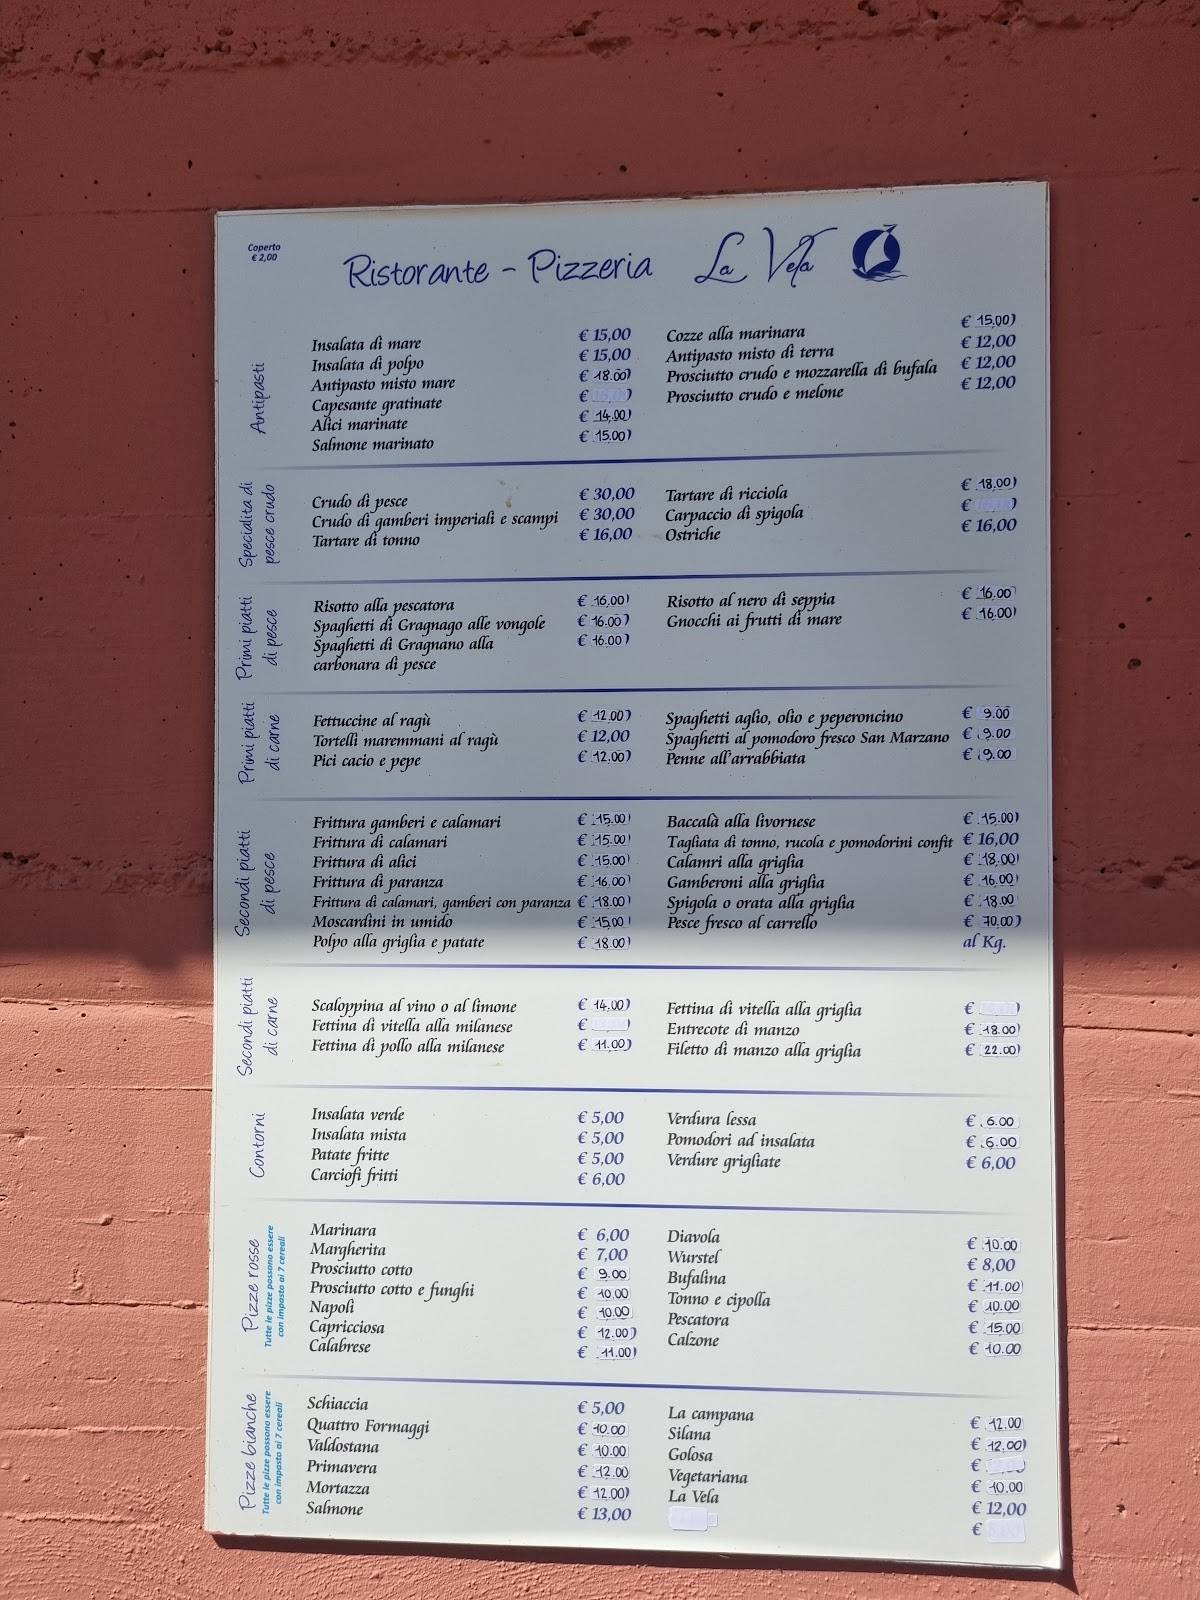 Coperto
€ 2,00
Ristorante - Pizzeria La Vela
Antipasti
Insalata di mare € 15,00
Insalata di polpo € 15,00
Antipasto misto mare € 18.00
Capesante gratinate €
Alici marinate € 14.00
Salmone marinato € 15.00
Cozze alla marinara € 15,00
Antipasto misto di terra € 12,00
Prosciutto crudo e mozzarella di bufala € 12,00
Prosciutto crudo e melone € 12,00
Specialita di
pesce crudo
Crudo di pesce € 30,00
Crudo di gamberi imperiali e scampi € 30,00
Tartare di tonno € 16,00
Tartare di ricciola € 18,00
Carpaccio di spigola €
Ostriche € 16,00
Primi piatti
di pesce
Risotto alla pescatora € 16,00
Spaghetti di Gragnago alle vongole € 16.00
Spaghetti di Gragnano alla € 16.00
carbonara di pesce
Risotto al nero di seppia € 16.00
Gnocchi ai frutti di mare € 16.00
Primi piatti
di carne
Fettuccine al ragù € 12.00
Tortelli maremmani al ragù € 12,00
Pici cacio e pepe € 12.00
Spaghetti aglio, olio e peperoncino € 9.00
Spaghetti al pomodoro fresco San Marzano € 9.00
Penne all'arrabbiata € 9.00
Secondi piatti
di pesce
Frittura gamberi e calamari € 15.00
Frittura di calamari € 15.00
Frittura di alici € 15.00
Frittura di paranza € 16.00
Frittura di calamari, gamberi con paranza € 18.00
Moscardini in umido € 15,00
Polpo alla griglia e patate € 18.00
Baccalà alla livornese € 15.00
Tagliata di tonno, rucola e pomodorini confit € 16,00
Calamri alla griglia € 18.00
Gamberoni alla griglia € 16.00
Spigola o orata alla griglia € 18.00
Pesce fresco al carrello € 70.00
al Kg.
Secondi piatti
di carne
Scaloppina al vino o al limone € 14.00
Fettina di vitella alla milanese €
Fettina di pollo alla milanese € 11.00
Fettina di vitella alla griglia €
Entrecote di manzo € 18.00
Filetto di manzo alla griglia € 22.00
Contorni
Insalata verde € 5,00
Insalata mista € 5,00
Patate fritte € 5,00
Carciofi fritti € 6,00
Verdura lessa € 6.00
Pomodori ad insalata € 6.00
Verdure grigliate € 6,00
Pizze rosse
Tutte le pizze possono essere
con impasto ai 7 cereali
Marinara € 6,00
Margherita € 7,00
Prosciutto cotto € 9.00
Prosciutto cotto e funghi € 10.00
Napoli € 10.00
Capricciosa € 12.00
Calabrese € 11.00
Diavola € 10.00
Wurstel € 8,00
Bufalina € 11.00
Tonno e cipolla € 10.00
Pescatora € 15.00
Calzone € 10.00
Pizze bianche
Tutte le pizze possono essere
con impasto ai 7 cereali
Schiaccia € 5,00
Quattro Formaggi € 10.00
Valdostana € 10.00
Primavera € 12.00
Mortazza € 12.00
Salmone € 13,00
La campana € 12.00
Silana € 12.00
Golosa €
Vegetariana € 10.00
La Vela € 12,00
€